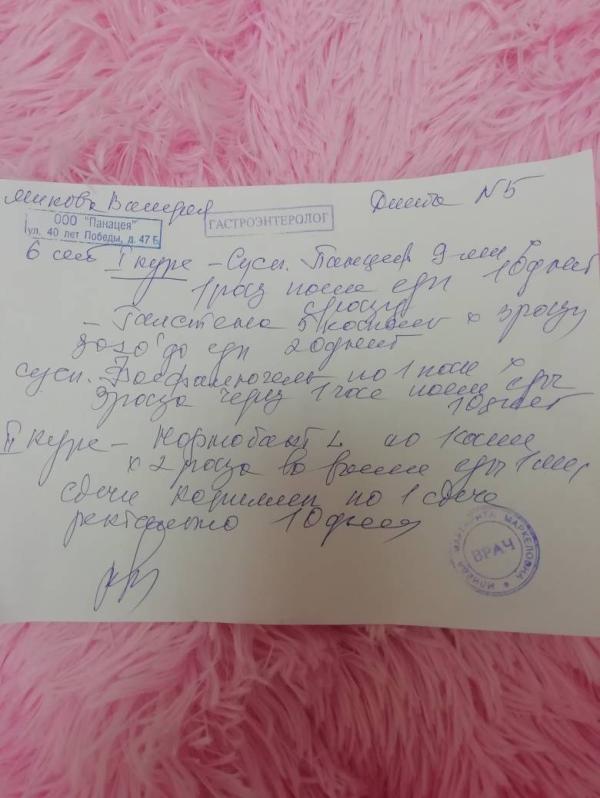 Валерия Диета N5
ООО "Панацея"
ул. 40 лет Победы, д. 47 Б
ГАСТРОЭНТЕРОЛОГ
6 лет I курс - Сусп. 9 мл x
1 раз после еды 10 дней
сразу
- Галстена 5 капель x 3 раза
за 20' до еды 20 дней
сусп. по 1 x
3 раза через 1 час после еды
10 дней
II курс - Нормобакт L по 1
x 2 раза во время еды 1 мес
свечи по 1 свече
ректально 10 дней
ВРАЧ
МАРКЕЛОВНА